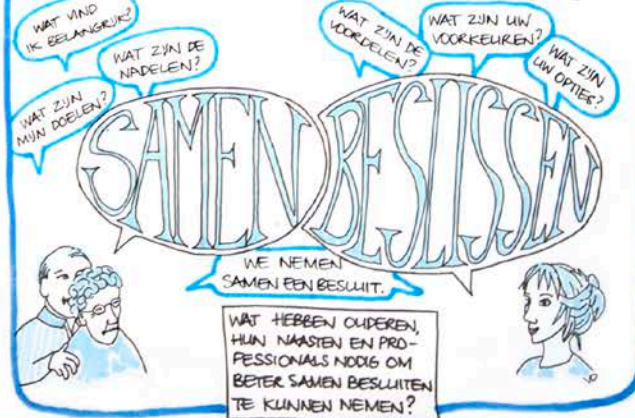 WAT VIND
IK BELANGRIJK?
WAT ZIJN DE
NADELEN?
WAT ZIJN
MIJN DOELEN?
WAT ZIJN DE
VOORDELEN?
WAT ZIJN UW
VOORKEUREN?
WAT ZIJN
UW OPTIES?
SAMEN
BESLISSEN
WE NEMEN
SAMEN EEN BESLUIT.
WAT HEBBEN OUDEREN,
HUN NAASTEN EN PRO-
FESSIONALS NODIG OM
BETER SAMEN BESLUITEN
TE KUNNEN NEMEN?